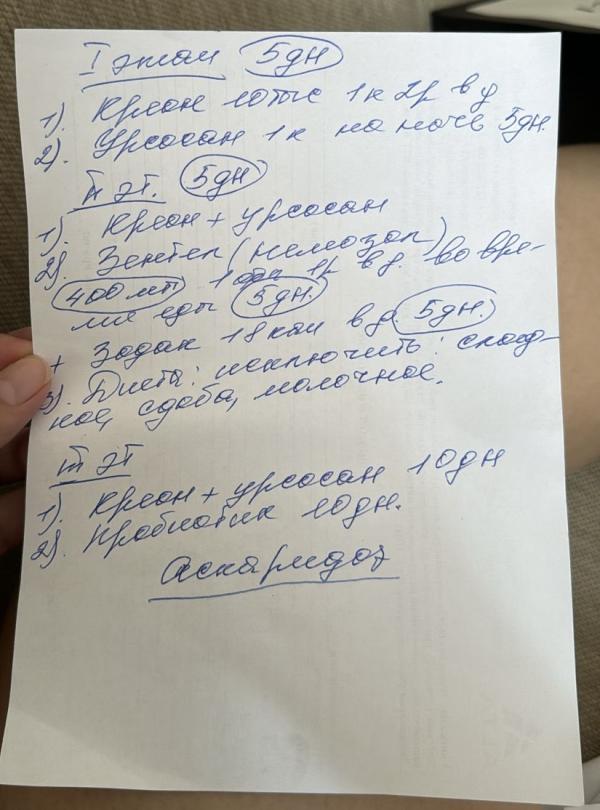 I этап 5дн
1). Креон 10тыс 1к 2р в д
2). Урсосан 1к на ночь 5дн.
II эт. 5дн
1). Креон + урсосан
2). Зентел (немозол)
400мг 1 1р в д. во вре-
мя еды 5дн.
+ Зодак 18 кап в д 5дн.
3). Диета: исключить: слад-
кое, сдоба, молочное.
III эт
1). Креон + урсосан 10дн
2). Пробиотик 10дн.
Аскаридоз